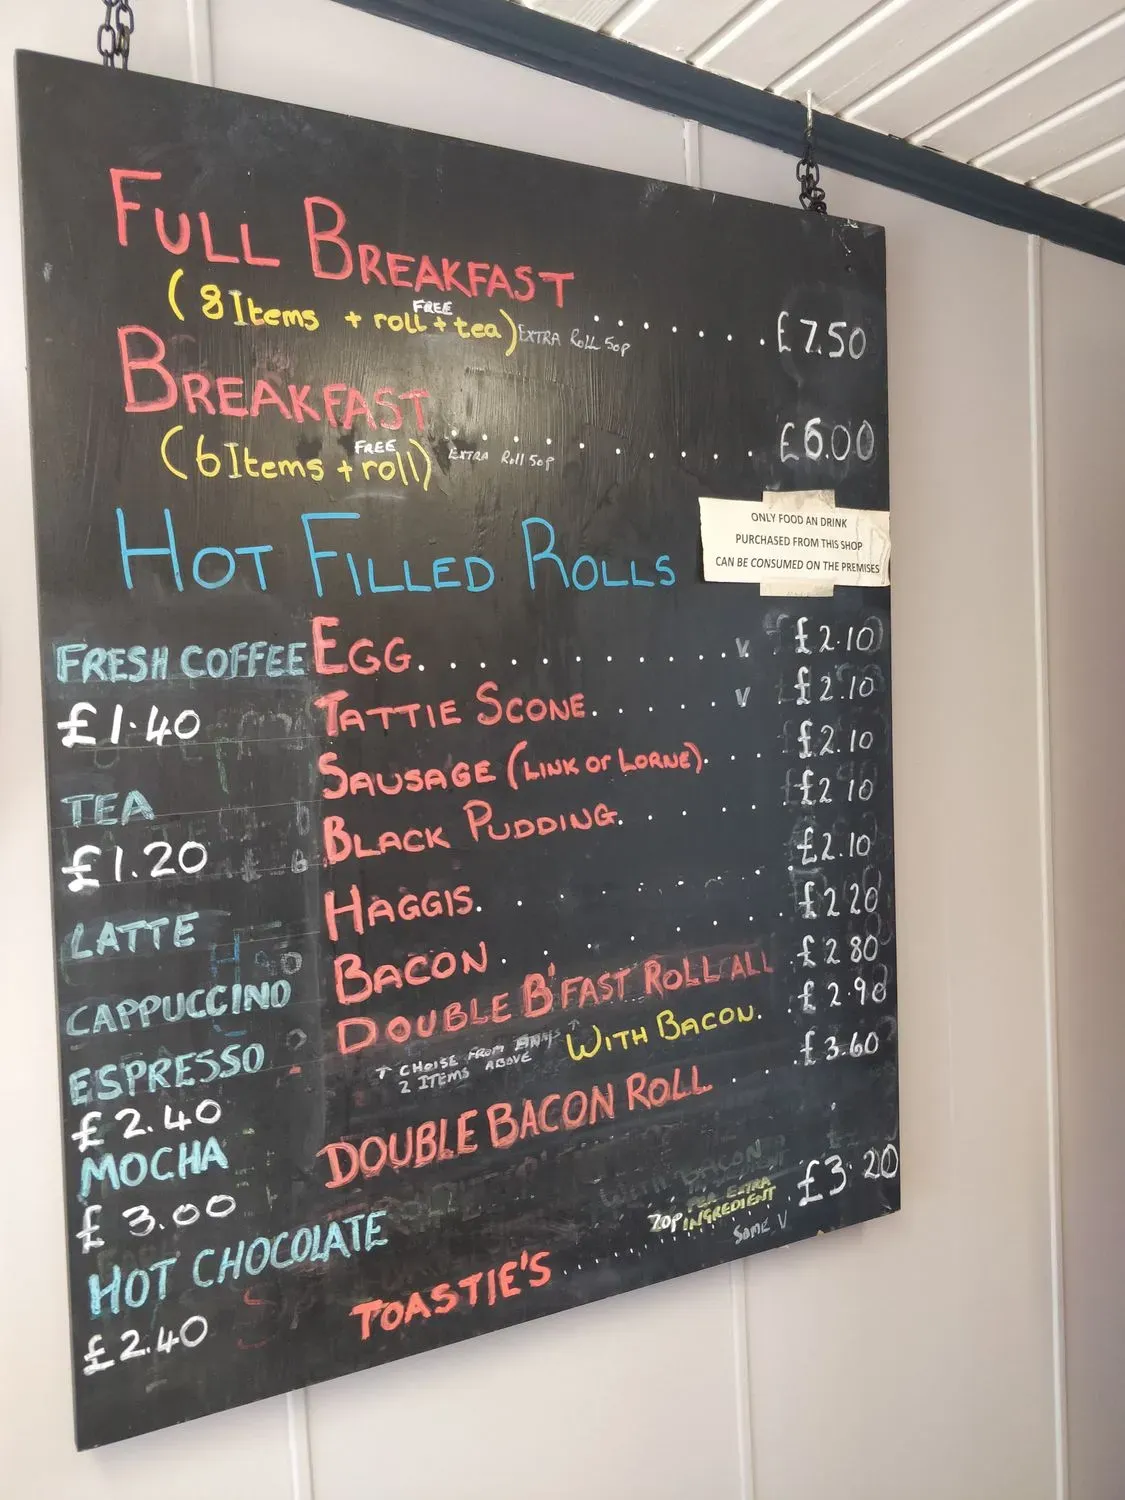 FULL BREAKFAST
FREE
(8 Items + roll + tea) EXTRA Roll 50p ........ £7.50
BREAKFAST
FREE
(6 Items + roll) EXTRA Roll 50p ........ £6.00
HOT FILLED ROLLS
ONLY FOOD AN DRINK
PURCHASED FROM THIS SHOP
CAN BE CONSUMED ON THE PREMISES
EGG ........ V £2.10
TATTIE SCONE ...... V £2.10
SAUSAGE (LINK or LORNE) ... £2.10
BLACK PUDDING ..... £2 10
HAGGIS ........ £2.10
BACON ........ £2 20
DOUBLE B'FAST ROLL ALL . £2 80
↑ CHOISE FROM ANY ↑
2 ITEMS ABOVE
WITH BACON. . £2.90
DOUBLE BACON ROLL .. .£3.60
WITH BACON
20p PER EXTRA
INGREDIENT
SOME V
TOASTIE'S ........ £3.20
FRESH COFFEE
£1.40
TEA
£1.20
LATTE
CAPPUCCINO
ESPRESSO
£2.40
MOCHA
£3.00
HOT CHOCOLATE
£2.40